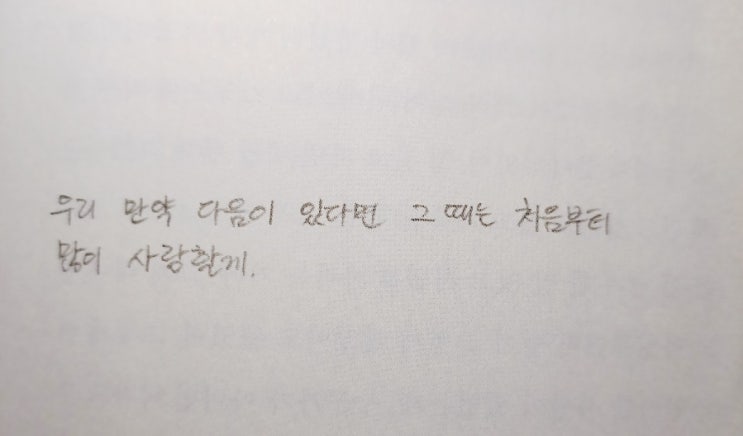 우리 만약 다음이 있다면 그때는 처음부터
많이 사랑할게.